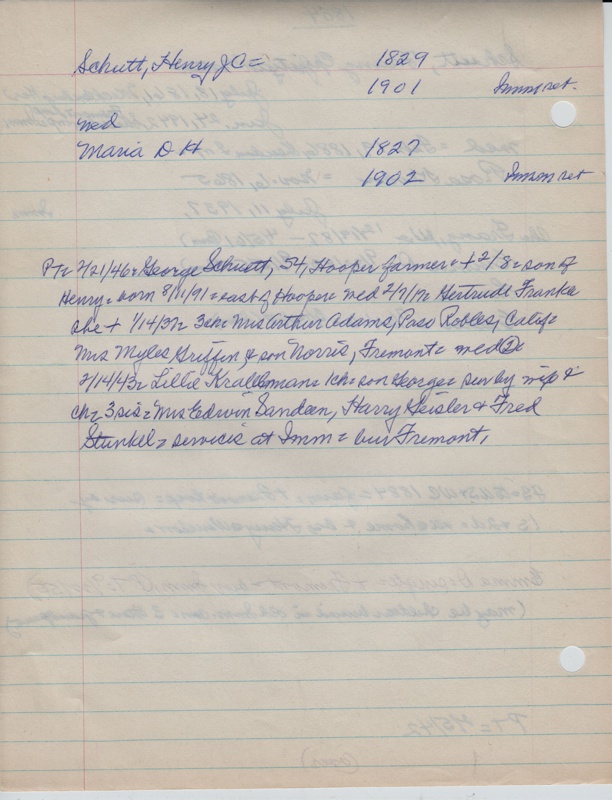 Schutt, Henry J C = 1829
1901 Imm ret.
wed
Maria D H 1827
1902 Imm ret
PT= 2/21/46= George Schuett, 54, Hooper farmer= + 2/8= son of
Henry= born 8/11/91= east of Hooper= wed 2/7/17= Gertrude Franke
she + 1/14/37= 3ch= Mrs Arthur Adams, Paso Robles, Calif=
Mrs Myles Griffin, & son Norris, Fremont= wed ②=
2/14/43= Lillie Krallman= 1ch= son George= surv by wife &
ch= 3 sis= Mrs Edwin Sandeen, Harry Geisler & Fred
Stunkel= services at Imm= bur Fremont,